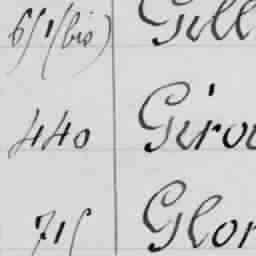 651 (bis) Gill
440 Girou
715 Glor